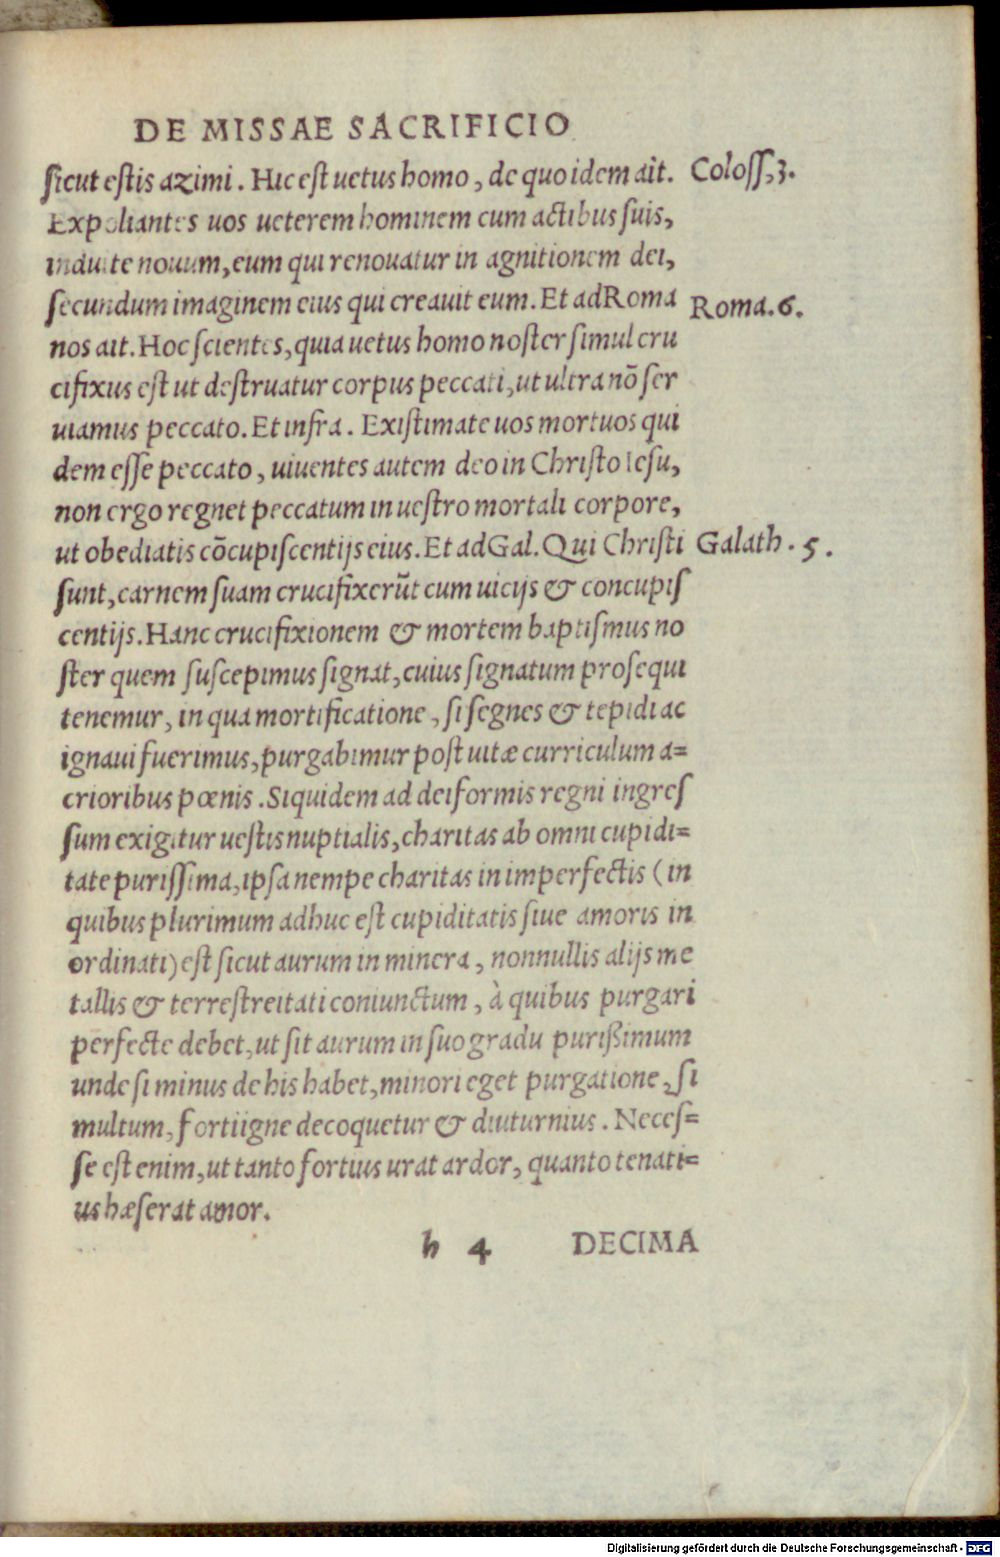 DE MISSAE SACRIFICIO
sicut estis azimi. Hic est uetus homo, de quo idem ait. Coloss,3.
Expoliantes uos ueterem hominem cum actibus suis,
induite nouum, eum qui renouatur in agnitionem dei,
secundum imaginem eius qui creauit eum. Et ad Roma Roma.6.
nos ait. Hoc scientes, quia uetus homo noster simul cru
cifixus est ut destruatur corpus peccati, ut ultra nõ ser
uiamus peccato. Et infra. Existimate uos mortuos qui
dem esse peccato, uiuentes autem deo in Christo Iesu,
non ergo regnet peccatum in uestro mortali corpore,
ut obediatis cõcupiscentijs eius. Et ad Gal. Qui Christi Galath. 5.
sunt, carnem suam crucifixerũt cum uicijs & concupis
centijs. Hanc crucifixionem & mortem baptismus no
ster quem suscepimus signat, cuius signatum prosequi
tenemur, in qua mortificatione, si segnes & tepidi ac
ignaui fuerimus, purgabimur post uitæ curriculum a=
crioribus pœnis. Siquidem ad deiformis regni ingres
sum exigitur uestis nuptialis, charitas ab omni cupidi=
tate purissima, ipsa nempe charitas in imperfectis (in
quibus plurimum adhuc est cupiditatis siue amoris in
ordinati) est sicut aurum in minera, nonnullis alijs me
tallis & terrestreitati coniunctum, à quibus purgari
perfecte debet, ut sit aurum in suo gradu purißimum
unde si minus de his habet, minori eget purgatione, si
multum, forti igne decoquetur & diuturnius. Neces=
se est enim, ut tanto fortius urat ardor, quanto tenati=
us hæserat amor.
h 4 DECIMA
Digitalisierung gefördert durch die Deutsche Forschungsgemeinschaft - DFG